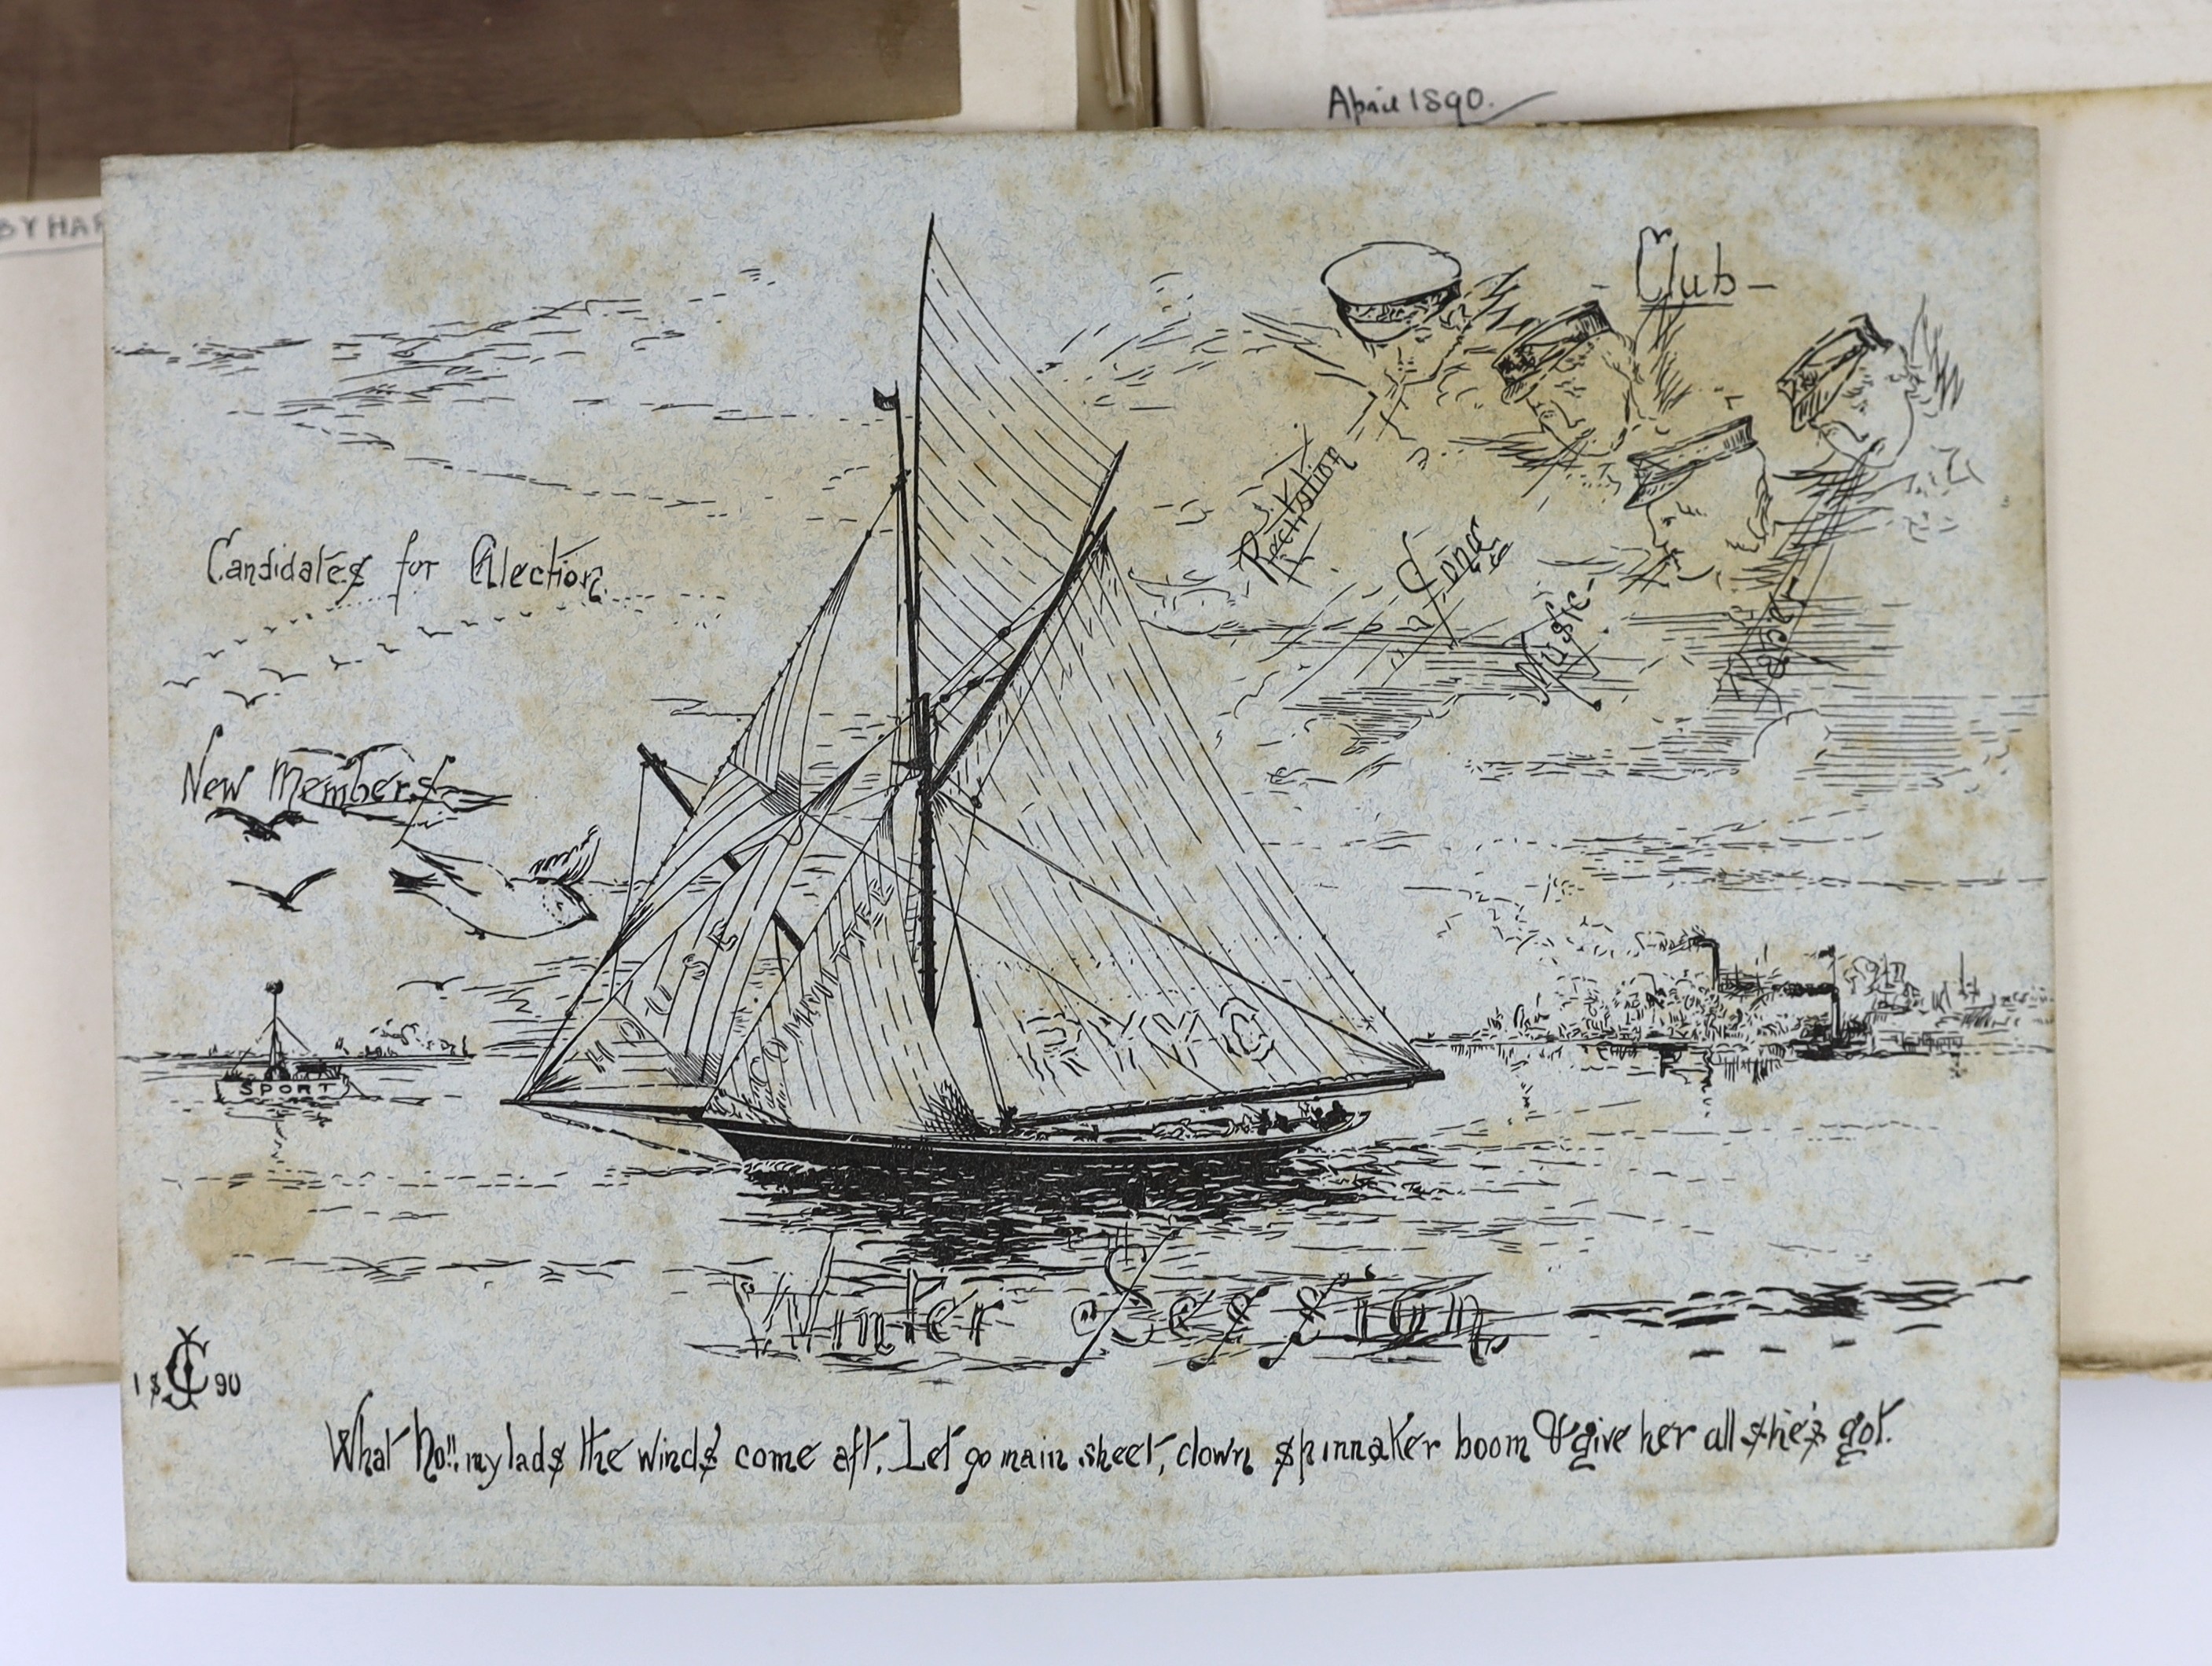 April 1890.
BY HAR
- Club -
Recitation
Song
Music
Tact
Candidates for Election
New Members
HOUSE
COMMITTEE
SPORT
Winter Session
1890
What ho!! my lads the winds come aft. Let go main sheet, down spinnaker boom & give her all she's got.